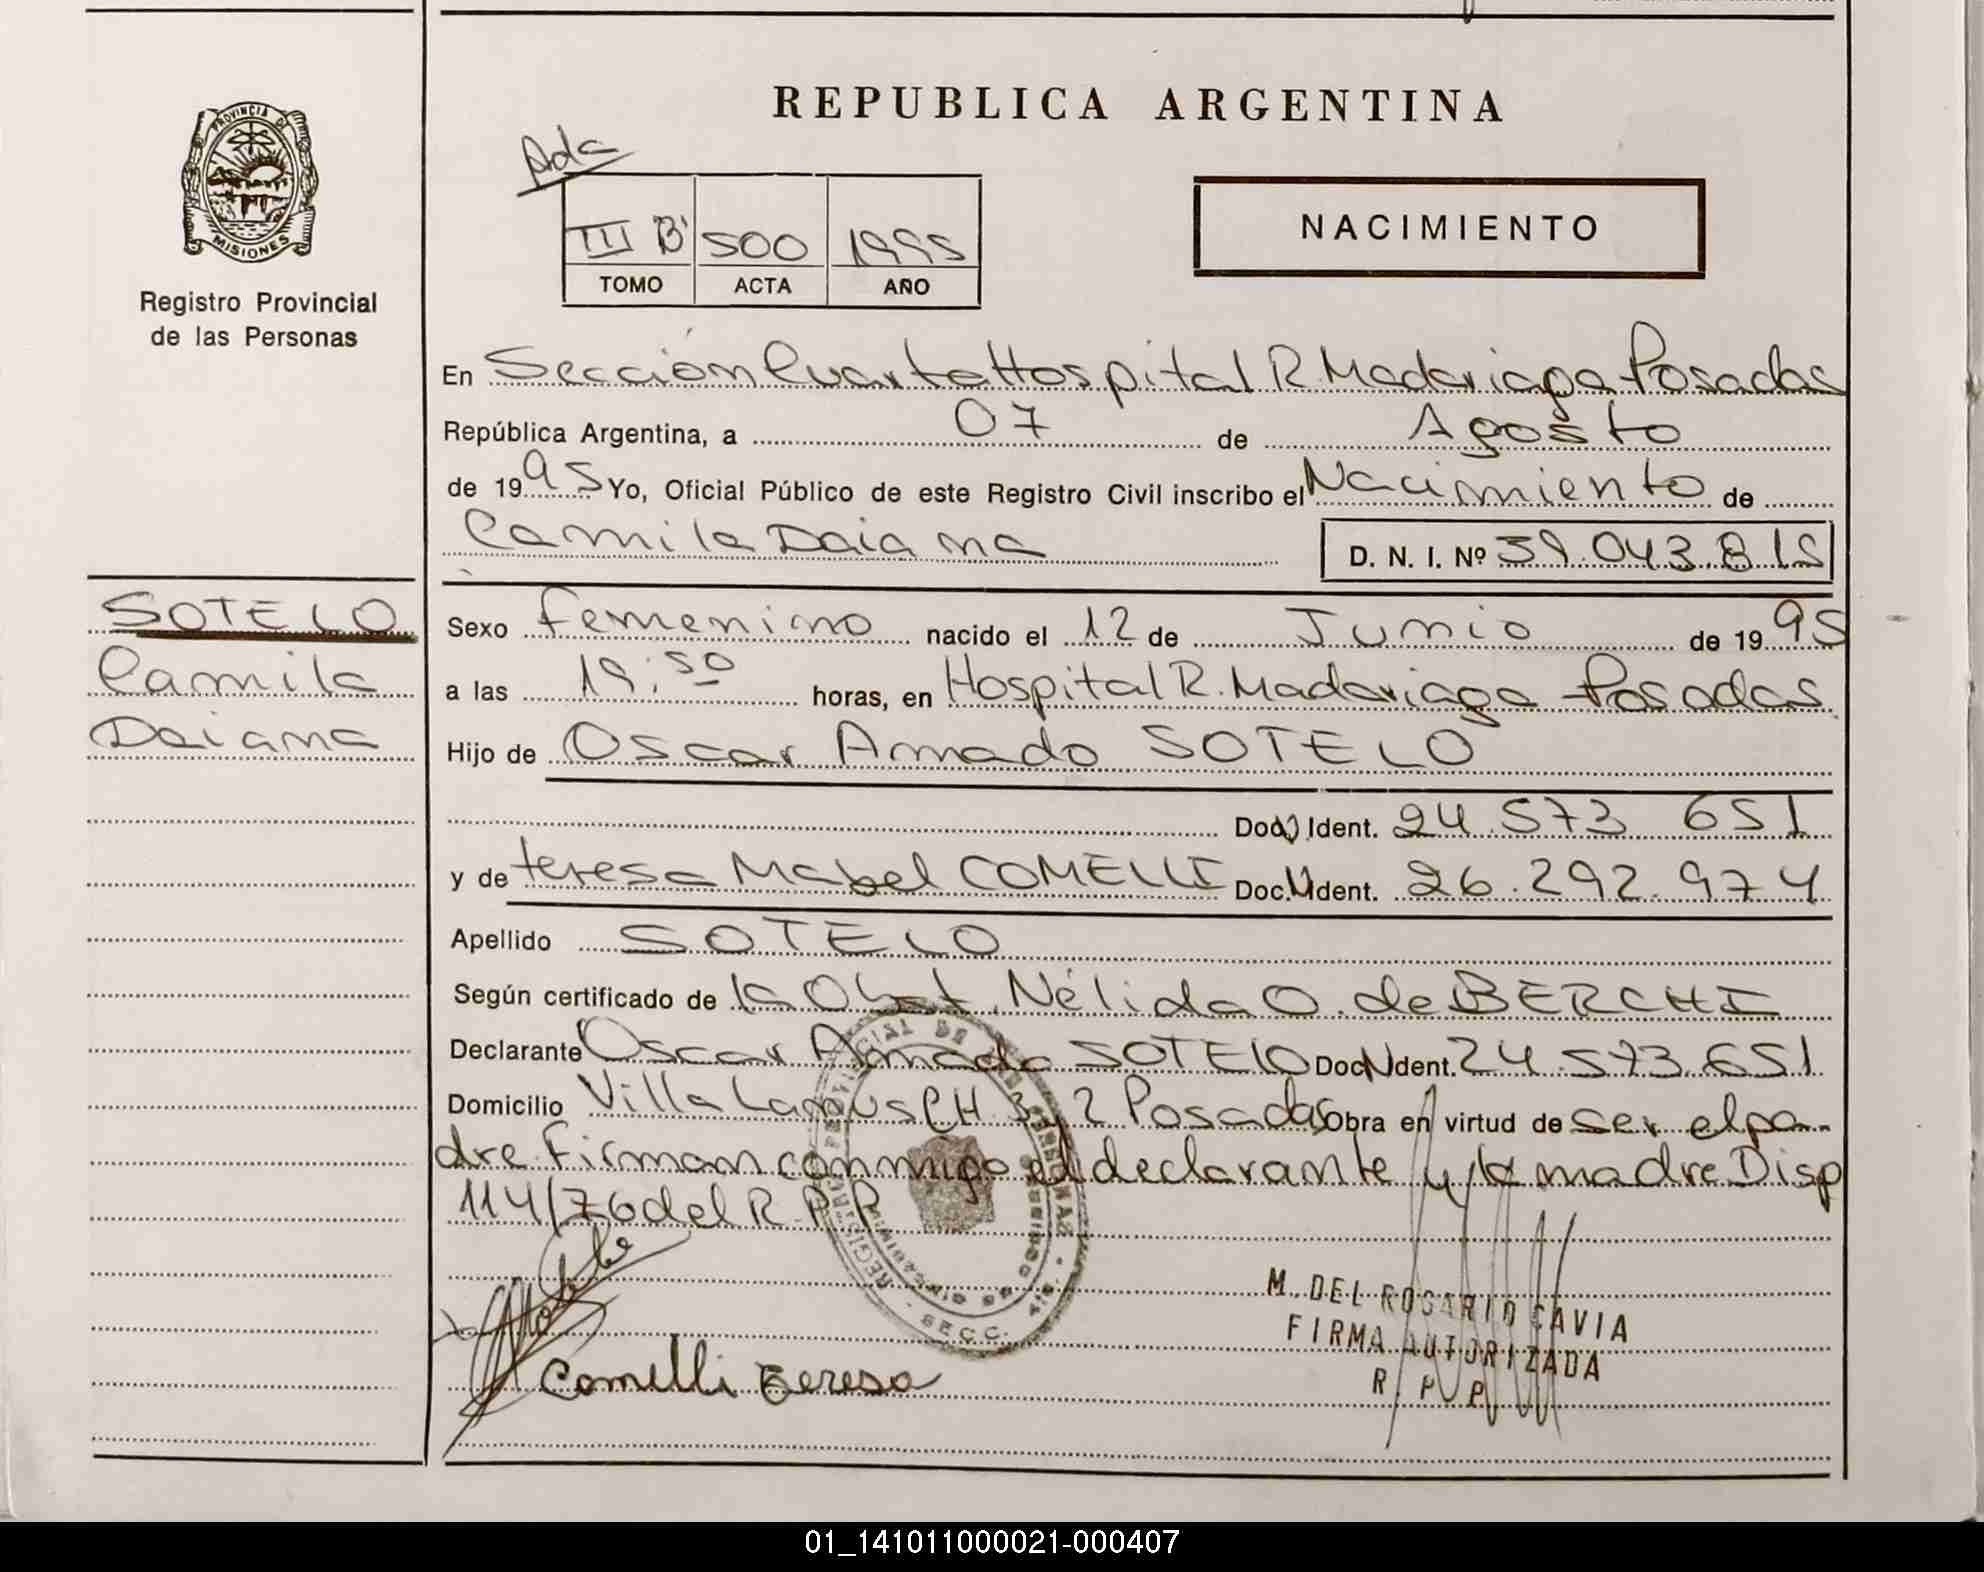 REPUBLICA ARGENTINA
Ada
III B' 500 1995
TOMO ACTA AÑO
NACIMIENTO
PROVINCIA DE
MISIONES
Registro Provincial
de las Personas
En Sección Cuarta Hospital R. Madariaga Posadas
República Argentina, a 07 de Agosto
de 1995 Yo, Oficial Público de este Registro Civil inscribo el Nacimiento de
Camila Daiana D. N. I. Nº 39.043.815
SOTELO
Camila
Daiana
Sexo femenino nacido el 12 de Junio de 1995
a las 19:50 horas, en Hospital R. Madariaga Posadas
Hijo de Oscar Amado SOTELO
Doc. Ident. 24.573 651
y de teresa Mabel COMELLI Doc. Ident. 26.292.974
Apellido SOTELO
Según certificado de la Obst. Nélida O. de BERCHI
Declarante Oscar Amado SOTELO Doc. Ident. 24.573.651
Domicilio Villa Lanus CH 3 y 2 Posadas Obra en virtud de ser el pa-
dre. Firman conmigo el declarante y la madre Disp
114/76 del R.P.P.
Comelli teresa
SECC. 4ta
M. DEL ROSARIO CAVIA
FIRMA AUTORIZADA
R. P. P.
01_141011000021-000407